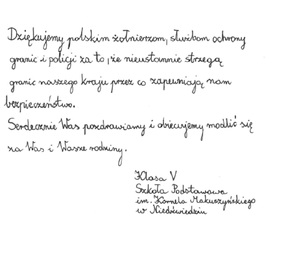 Dziękujemy polskim żołnierzom, służbom ochrony
granic i policji za to, że nieustannie strzegą
granic naszego kraju przez co zapewniają nam
bezpieczeństwo.
Serdecznie Was pozdrawiamy i obiecujemy modlić się
za Was i Wasze rodziny.
Klasa V
Szkoła Podstawowa
im. Kornela Makuszyńskiego
w Niedźwiedziu